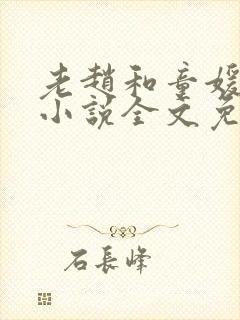 老趙和童媛
小說全文免
石長峰